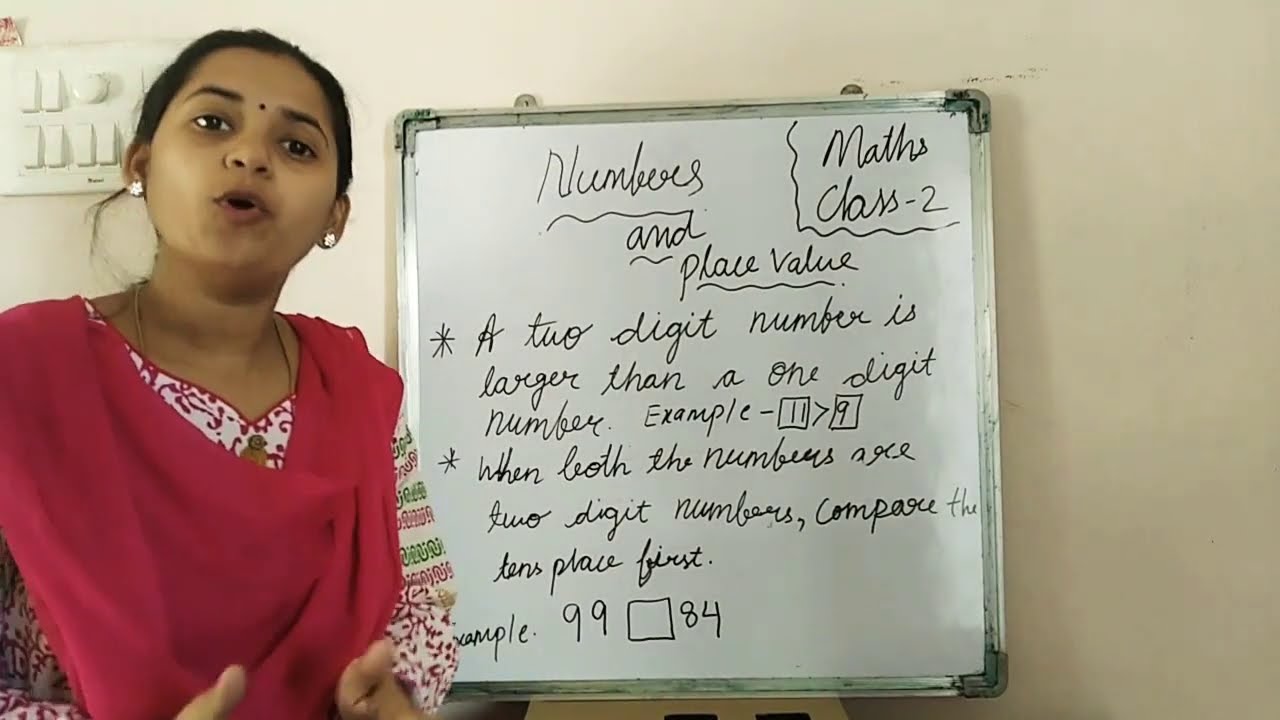 Numbers
and
place value
Maths
Class-2
* A two digit number is
larger than a one digit
number. Example - 11 > 9
* When both the numbers are
two digit numbers, compare the
tens place first.
xample. 99 □ 84